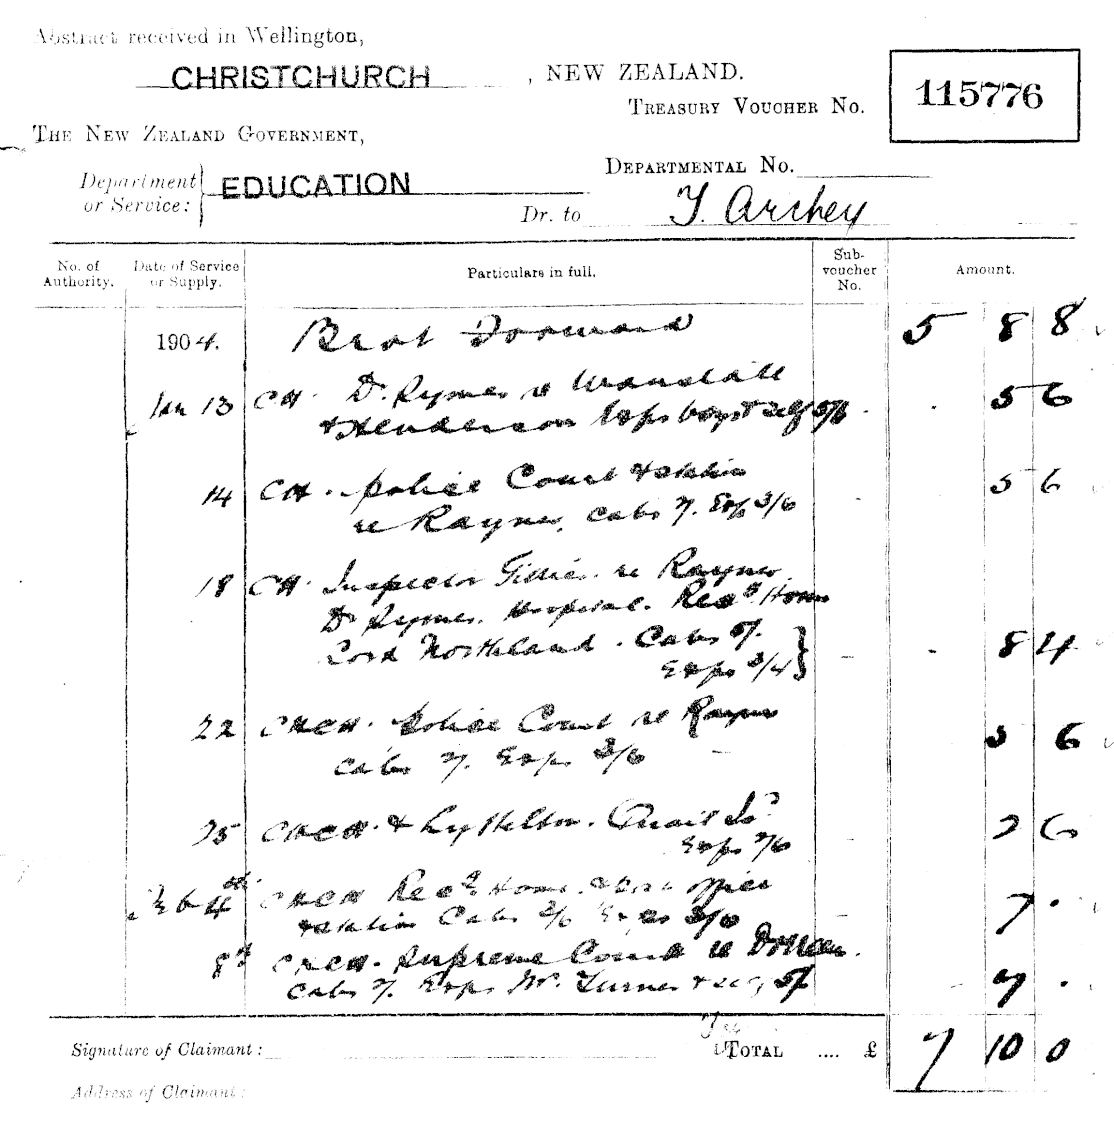 Abstract received in Wellington,
CHRISTCHURCH , NEW ZEALAND.
TREASURY VOUCHER No. 115776
THE NEW ZEALAND GOVERNMENT,
DEPARTMENTAL No.
Department or Service: EDUCATION
Dr. to Archey
No. of Authority. Date of Service or Supply. Particulars in full. Sub-voucher No. Amount.
1904. Brot Forward 5 8 8
Jan 13 CH. Dr. Rymer re
& Henderson Exps boys & self 5/6 . 5 6
14 CH. Police Court & station 5 6
re Rayner, Cabs 2/. Exps 3/6
18 CH. Inspector Gillies. re Rayner
Dr Rymer. Hospital. Recg. Home
Lord Northland. Cabs 5/.
Exps 3/4 } . 8 4
22 CHCH. Police Court re Rayner 5 6
Cabs 2/. Exps 3/6
25 CHCH. & Lyttelton.
Exps 2/6 2 6
Feb 4th CHCH Recg Home. office
& station Cabs Exps 7 .
8th CHCH. Supreme Court re
Cabs 2/. Exps Mr. Turner & self 5/ 7 .
Signature of Claimant: TOTAL .... £ 7 10 0
Address of Claimant: